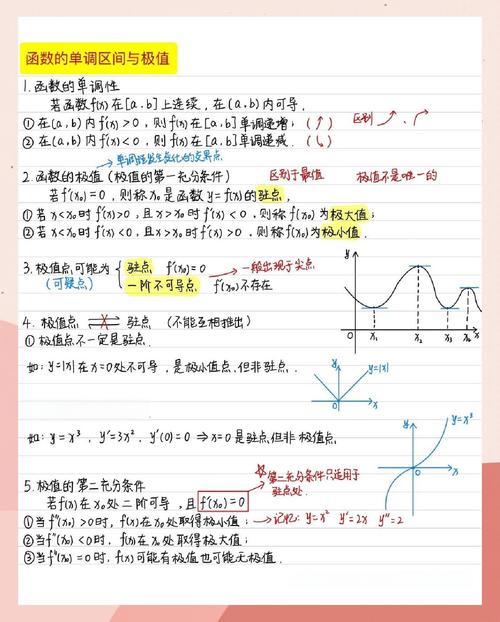 函数的单调区间与极值
1.函数的单调性
若函数f(x)在[a,b]上连续,在(a,b)内可导.
①在(a,b)内f'(x)>0,则f(x)在[a,b]单调递增;(↗) 区别 ↗.↗
②在(a,b)内f'(x)<0,则f(x)在[a,b]单调递减.(↘)
单调性发生变化的交界点
2.函数的极值(极值的第一充分条件) 区别于最值 极值不是唯一的
若f'(x₀)=0,则称x₀是函数y=f(x)的驻点,
①若x<x₀时f'(x)>0,且x>x₀时f'(x)<0,则称f(x₀)为极大值;
②若x<x₀时f'(x)<0,且x>x₀时f'(x)>0,则称f(x₀)为极小值.
3.极值点可能为{驻点 f'(x₀)=0 →一般出现于尖点
(可疑点) 一阶不可导点 f'(x₀)不存在
y
x₁ x₂ x₃ x₄ x
4.极值点 ⇌ 驻点 (不能互相推出)
①极值点不一定是驻点.
如:y=|x|在x=0处不可导,是极小值点,但非驻点.
y y=|x|
0 x
如:y=x³,y'=3x²,y'(0)=0⇒x=0是驻点,但非极值点.
y y=x³
0 x
☆第二充分条件只适用于
驻点处.
5.极值的第二充分条件
若f(x)在x₀处二阶可导,且f'(x₀)=0
①当f"(x₀)>0时,f(x)在x₀处取得极小值; →记忆:y=x² y'=2x y"=2
②当f"(x₀)<0时,f(x)在x₀处取得极大值;
③当f"(x₀)=0时,f(x)可能有极值也可能无极值.